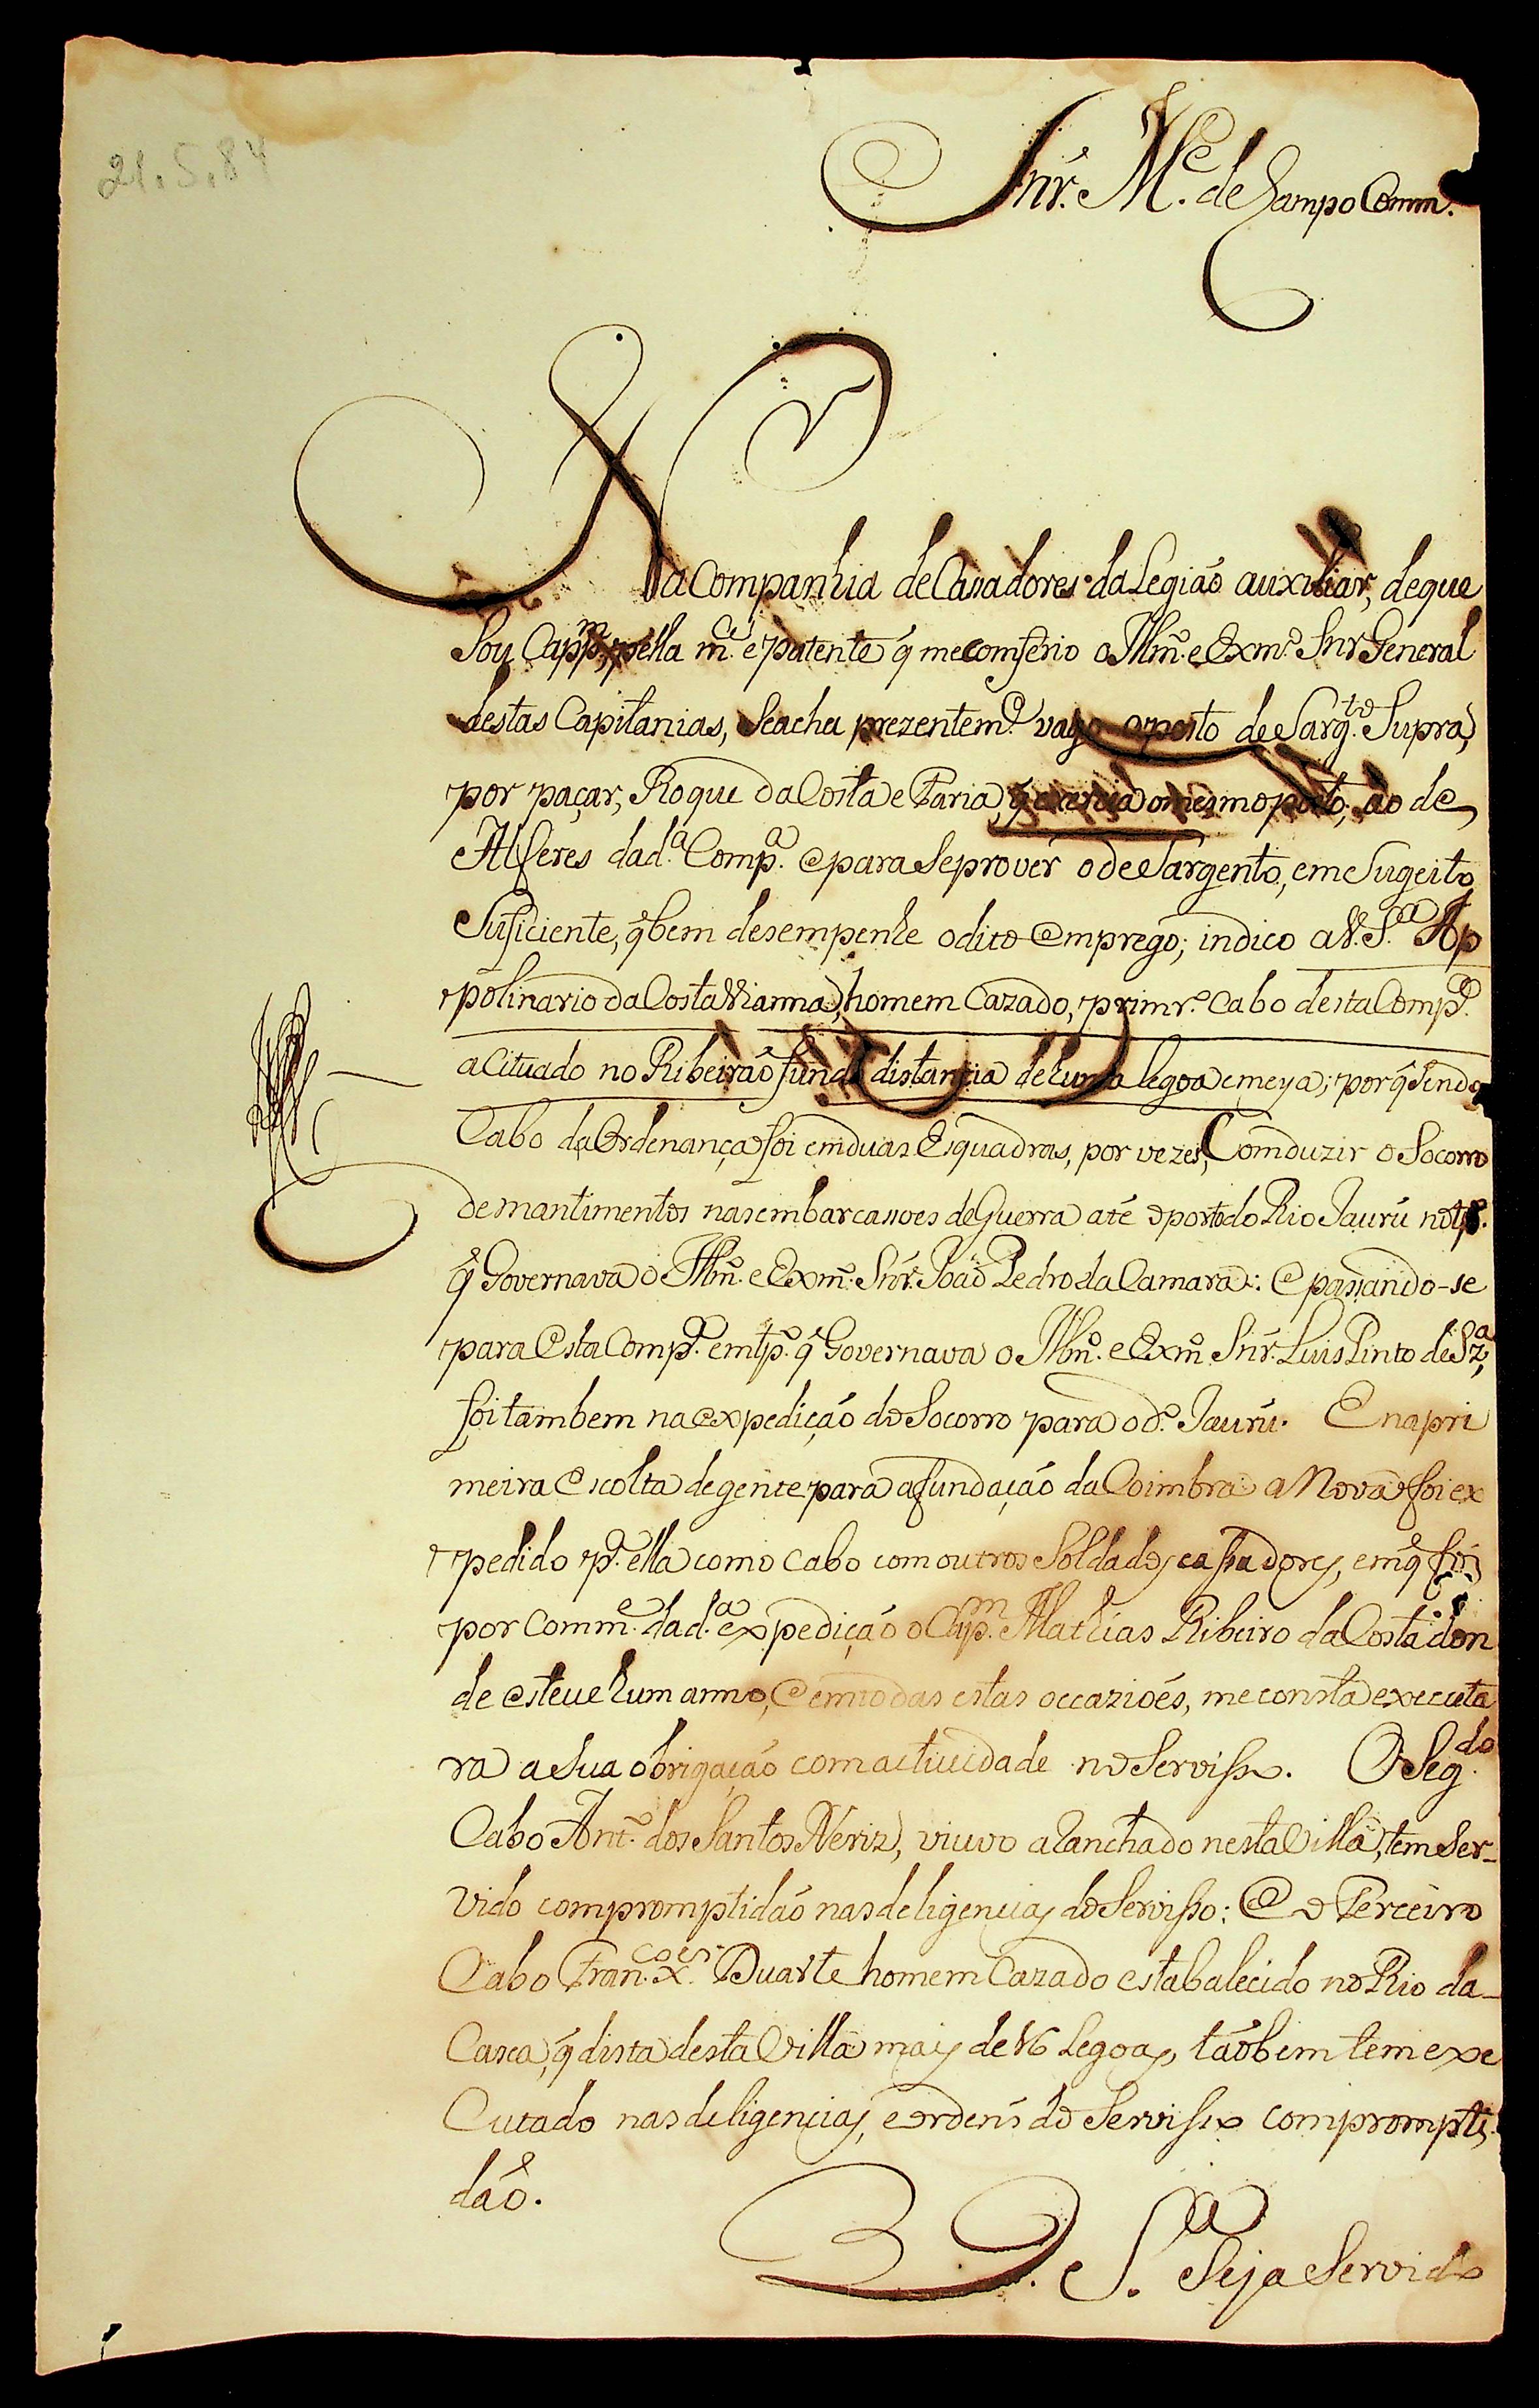 21.5.84
Snr. M.e de Campo Comm.
Na Companhia de Casadores da Legiáo auxiliar, de que
Sou Capp.m, pella m.ce e patente q̃ me comferio o Illm.o e Exm.o Snr General
destas Capitanias, Seacha prezentem.e vago o posto de Sarg.to Supra,
por paçar, Roque da Costa e Faria, q̃ exercia o mesmo posto, ao de
Alferes da d.a Comp.a e para Se prover o de Sargento, em Sugeito
Suficiente, q̃ bem desempenhe o dito Emprego; indico a V. S.a Ap
polinario da Costa Vianna, homem Cazado, primr.o Cabo desta Comp.a
a Cituado no Ribeiráo fundo distancia de huma legoa e meya; por q̃ Sendo
Cabo da Ordenança foi em duas Esquadras, por vezes, Comduzir o Socorro
de mantimentos nas embarcassoes de Guerra até o porto do Rio Jaurú no tp.o
q̃ Governava o Illm.o e Exm.o Snr. Joáo Pedro da Camara: E passando-se
para Esta Comp.a em tp.o q̃ Governava o Illm.o e Exm.o Snr. Luis Pinto de Sz.a,
foi tambem na expediçáo do Socorro para o d.o Jaurú. E na pri
meira Escolta de gente para a fundaçáo da Coimbra a Nova foi ex
pedido p.a ella como Cabo com outros Soldados cassadores, em q̃ foi
por Comm.e da d.a expediçáo o Cap.m Mathias Ribeiro da Costa don
de esteve hum anno, e em todas estas occazioés, me consta executa
ra a Sua obrigaçáo com actividade no Servisso. O Seg.do
Cabo Ant.o dos Santos Neriz, viuvo aranchado nesta Villa, tem Ser-
vido com promptidáo nas deligencias do Servisso: E o Terceiro
Cabo Fran.co X.er Duarte homem Cazado estabalecido no Rio da-
Casca, q̃ dista desta Villa mais de 16 Legoas, táobem tem exe
Cutado nas deligencias, e ordens do Servisso com prompti-
dáo.
V. S.a Seja Servido